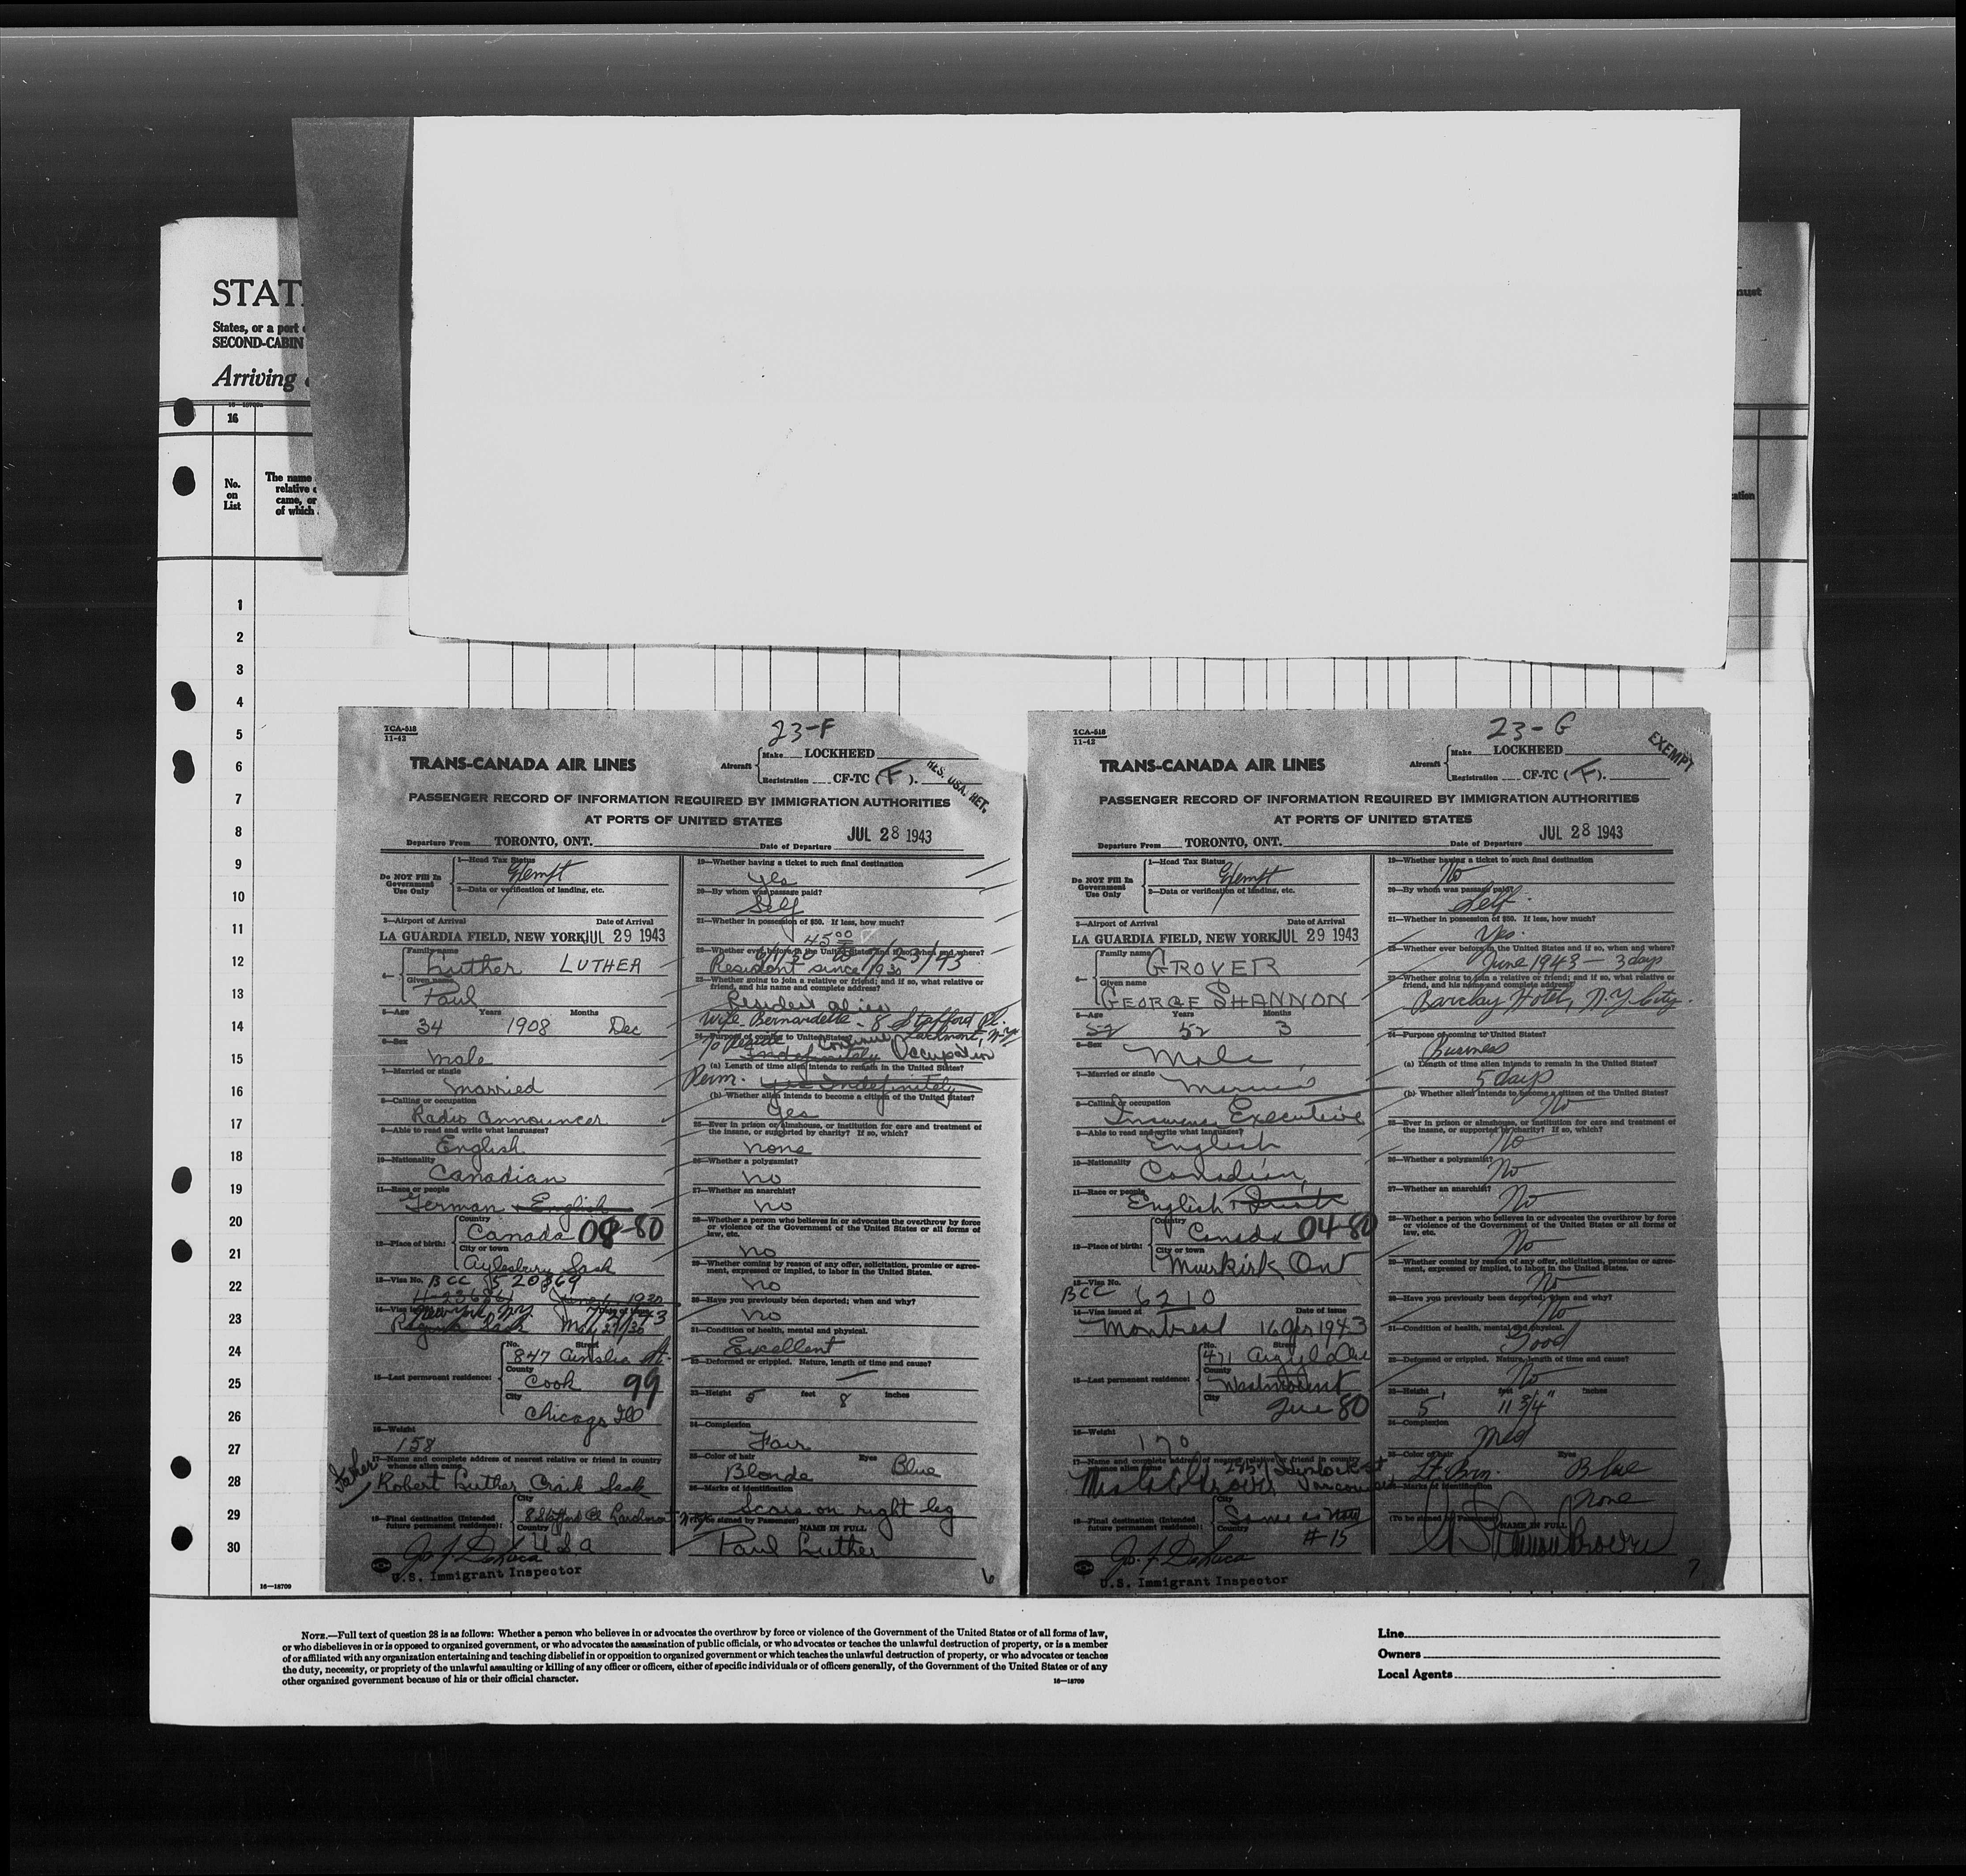 STAT
States, or a port
SECOND-CABIN
Arriving
must
16
No.
on
List
The name
relative
came, or
of which
ation
1
2
3
4
5
6
7
8
9
10
11
12
13
14
15
16
17
18
19
20
21
22
23
24
25
26
27
28
29
30
16—18709
TCA-518
11-42
23-F
TRANS-CANADA AIR LINES
Aircraft
Make LOCKHEED
Registration CF-TC (F).
RES. USA. RET.
PASSENGER RECORD OF INFORMATION REQUIRED BY IMMIGRATION AUTHORITIES
AT PORTS OF UNITED STATES
JUL 28 1943
Departure From TORONTO, ONT. Date of Departure
Do NOT Fill In
Government
Use Only
1—Head Tax Status
Exempt
2—Data or verification of landing, etc.
3—Airport of Arrival Date of Arrival
LA GUARDIA FIELD, NEW YORK JUL 29 1943
4—
Family name
Luther LUTHER
Given name
Paul
5—Age Years Months
34 1908 Dec
6—Sex
Male
7—Married or single
Married
8—Calling or occupation
Radio Announcer
9—Able to read and write what languages?
English
10—Nationality
Canadian
11—Race or people
German + English
12—Place of birth:
Country
Canada 08-80
City or town
Aylesbury Sask
13—Visa No. BCC 520869
June 1930
14—Visa issued at
New York, N.Y.
Regina Sask May 27/30
15—Last permanent residence:
No. Street
847 Ainslie St.
County
Cook 99
City
Chicago Ill
16—Weight
158
17—Name and complete address of nearest relative or friend in country
whence alien came
Father
Robert Luther Craik Sask
18—Final destination (Intended
future permanent residence):
City
8 Stafford Pl Larchmont N.Y.
Country
U S A
U.S. Immigrant Inspector
19—Whether having a ticket to such final destination
Yes
20—By whom was passage paid?
Self
21—Whether in possession of $50. If less, how much?
45.00
22—Whether ever before in the United States and if so, when and where?
6/1/30 to 7/23/43
Resident since 1930
23—Whether going to join a relative or friend; and if so, what relative or
friend, and his name and complete address?
Resident alien
Wife Bernardette - 8 Stafford Pl.
Larchmont, N.Y.
24—Purpose of coming to United States?
To reside Continue
Indefinitely Occupation
(a) Length of time alien intends to remain in the United States?
Perm. Yes Indefinitely
(b) Whether alien intends to become a citizen of the United States?
Yes
25—Ever in prison or almshouse, or institution for care and treatment of
the insane, or supported by charity? If so, which?
none
26—Whether a polygamist?
no
27—Whether an anarchist?
no
28—Whether a person who believes in or advocates the overthrow by force
or violence of the Government of the United States or all forms of
law, etc.
no
29—Whether coming by reason of any offer, solicitation, promise or agree-
ment, expressed or implied, to labor in the United States.
no
30—Have you previously been deported; when and why?
no
31—Condition of health, mental and physical.
Excellent
32—Deformed or crippled. Nature, length of time and cause?
—
33—Height 5 feet 8 inches
34—Complexion
Fair
35—Color of hair Eyes
Blonde Blue
36—Marks of identification
Scars on right leg
(To be signed by Passenger)
NAME IN FULL
Paul Luther
6
TCA-518
11-42
23-G
TRANS-CANADA AIR LINES
Aircraft
Make LOCKHEED
Registration CF-TC (F).
EXEMPT
PASSENGER RECORD OF INFORMATION REQUIRED BY IMMIGRATION AUTHORITIES
AT PORTS OF UNITED STATES
JUL 28 1943
Departure From TORONTO, ONT. Date of Departure
Do NOT Fill In
Government
Use Only
1—Head Tax Status
Exempt
2—Data or verification of landing, etc.
3—Airport of Arrival Date of Arrival
LA GUARDIA FIELD, NEW YORK JUL 29 1943
4—
Family name
GROVER
Given name
GEORGE SHANNON
5—Age Years Months
52 52 3
6—Sex
Male
7—Married or single
Married
8—Calling or occupation
Insurance Executive
9—Able to read and write what languages?
English
10—Nationality
Canadian
11—Race or people
English + Irish
12—Place of birth:
Country
Canada 04-80
City or town
Muirkirk Ont
13—Visa No.
BCC 6210
14—Visa issued at Date of Issue
Montreal 16 Apr 1943
15—Last permanent residence:
No. Street
471 Argyle Ave
County
Westmount
City
Que 80
16—Weight
170
17—Name and complete address of nearest relative or friend in country
whence alien came
Grover Vancouver
18—Final destination (Intended
future permanent residence):
City
Same as now
Country
#15
U.S. Immigrant Inspector
19—Whether having a ticket to such final destination
No
20—By whom was passage paid?
Self.
21—Whether in possession of $50. If less, how much?
Yes.
22—Whether ever before in the United States and if so, when and where?
June 1943 — 3 days
23—Whether going to join a relative or friend; and if so, what relative or
friend, and his name and complete address?
Barclay Hotel, N.Y. City.
24—Purpose of coming to United States?
Business
(a) Length of time alien intends to remain in the United States?
5 days
(b) Whether alien intends to become a citizen of the United States?
No
25—Ever in prison or almshouse, or institution for care and treatment of
the insane, or supported by charity? If so, which?
No
26—Whether a polygamist?
No
27—Whether an anarchist?
No
28—Whether a person who believes in or advocates the overthrow by force
or violence of the Government of the United States or all forms of
law, etc.
No
29—Whether coming by reason of any offer, solicitation, promise or agree-
ment, expressed or implied, to labor in the United States.
No
30—Have you previously been deported; when and why?
No
31—Condition of health, mental and physical.
Good
32—Deformed or crippled. Nature, length of time and cause?
No
33—Height feet inches
5' 11 3/4"
34—Complexion
Med
35—Color of hair Eyes
Lt. Brn. Blue
36—Marks of identification
None
(To be signed by Passenger)
NAME IN FULL
7
NOTE.—Full text of question 28 is as follows: Whether a person who believes in or advocates the overthrow by force or violence of the Government of the United States or of all forms of law,
or who disbelieves in or is opposed to organized government, or who advocates the assassination of public officials, or who advocates or teaches the unlawful destruction of property, or is a member
of or affiliated with any organization entertaining and teaching disbelief in or opposition to organized government or which teaches the unlawful destruction of property, or who advocates or teaches
the duty, necessity, or propriety of the unlawful assaulting or killing of any officer or officers, either of specific individuals or of officers generally, of the Government of the United States or of any
other organized government because of his or their official character.
16—18709
Line
Owners
Local Agents